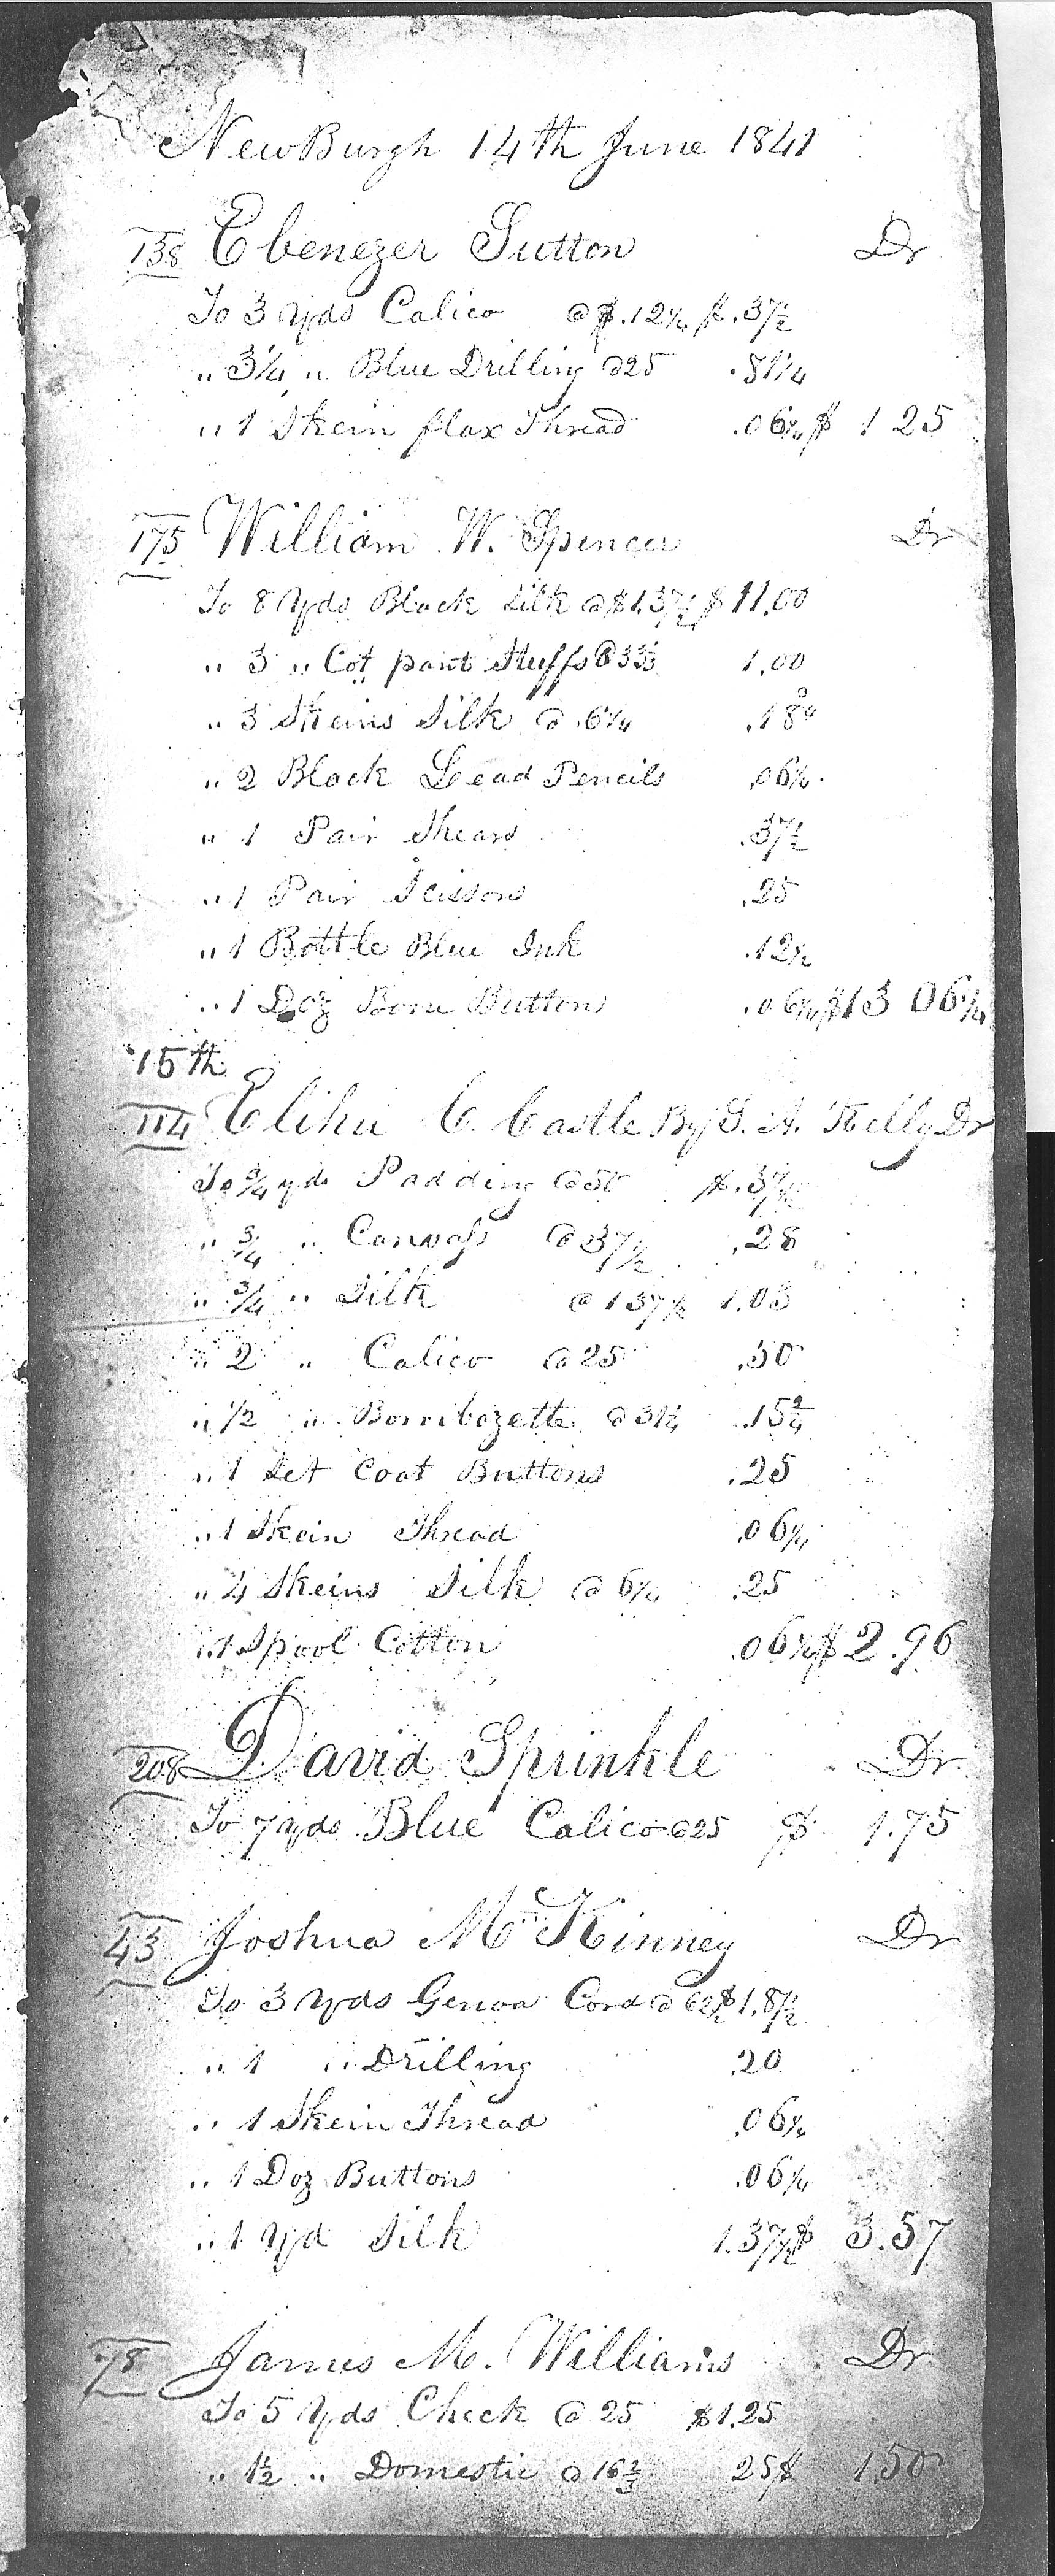 NewBurgh 14th June 1841
138 Ebenezer Sutton Dr
To 3 Yds Calico @ $.12½ $.37½
" 3¼ " Blue Drilling @25 .81¼
" 1 Skein flax Thread .06¼ $ 1 25
175 William W. Spencer Dr
To 8 Yds Black Silk @ $1.37½ $11.00
" 3 " Cot pant Stuffs @ 33⅓ 1.00
" 3 Skeins Silk @ .6¼ .18¾
" 2 Black Lead Pencils .06¼
" 1 Pair Shears .37½
" 1 Pair Scissors .25
" 1 Bottle Blue Ink .12½
" 1 Doz Bone Buttons .06¼ $13 06¼
15th
114 Elihu C. Castle By G. A. Kelly Dr
To ¾ yds Padding @50 $.37½
" ¾ " Canvass @37½ .28
" ¾ " Silk @ 137½ 1.03
" 2 " Calico @25 .50
" ½ " Bombazette @31¼ .15¾
" 1 Set Coat Buttons .25
" 1 Skein Thread .06¼
" 4 Skeins Silk @ 6¼ .25
" 1 Spool Cotton .06¼ $2.96
208 David Sprinkle Dr
To 7 Yds Blue Calico @25 $ 1.75
43 Joshua McKinney Dr
To 3 Yds Genoa Cord @ 62½ $1.87½
" 1 " Drilling .20
" 1 Skein Thread .06¼
" 1 Doz Buttons .06¼
" 1 Yd Silk 1.37½ $ 3.57
78 James M. Williams Dr
To 5 Yds Check @ 25 $1.25
" 1½ " Domestic @ 16⅔ 25 $ 1.50